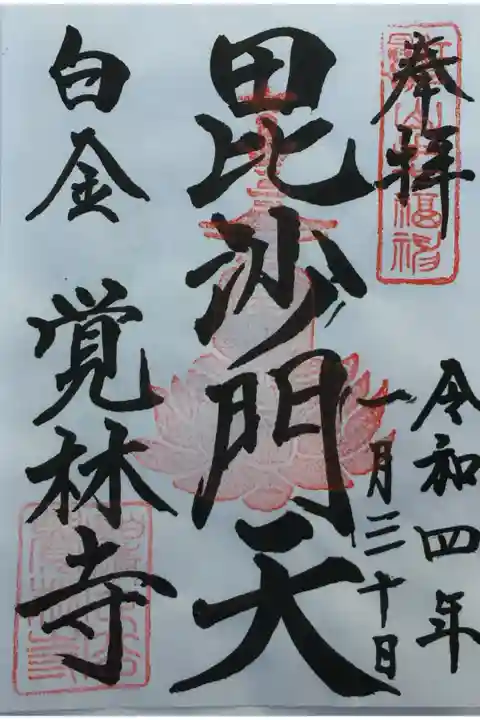 奉拝
令和四年
一月三十日
毘沙門天
白金 覚林寺